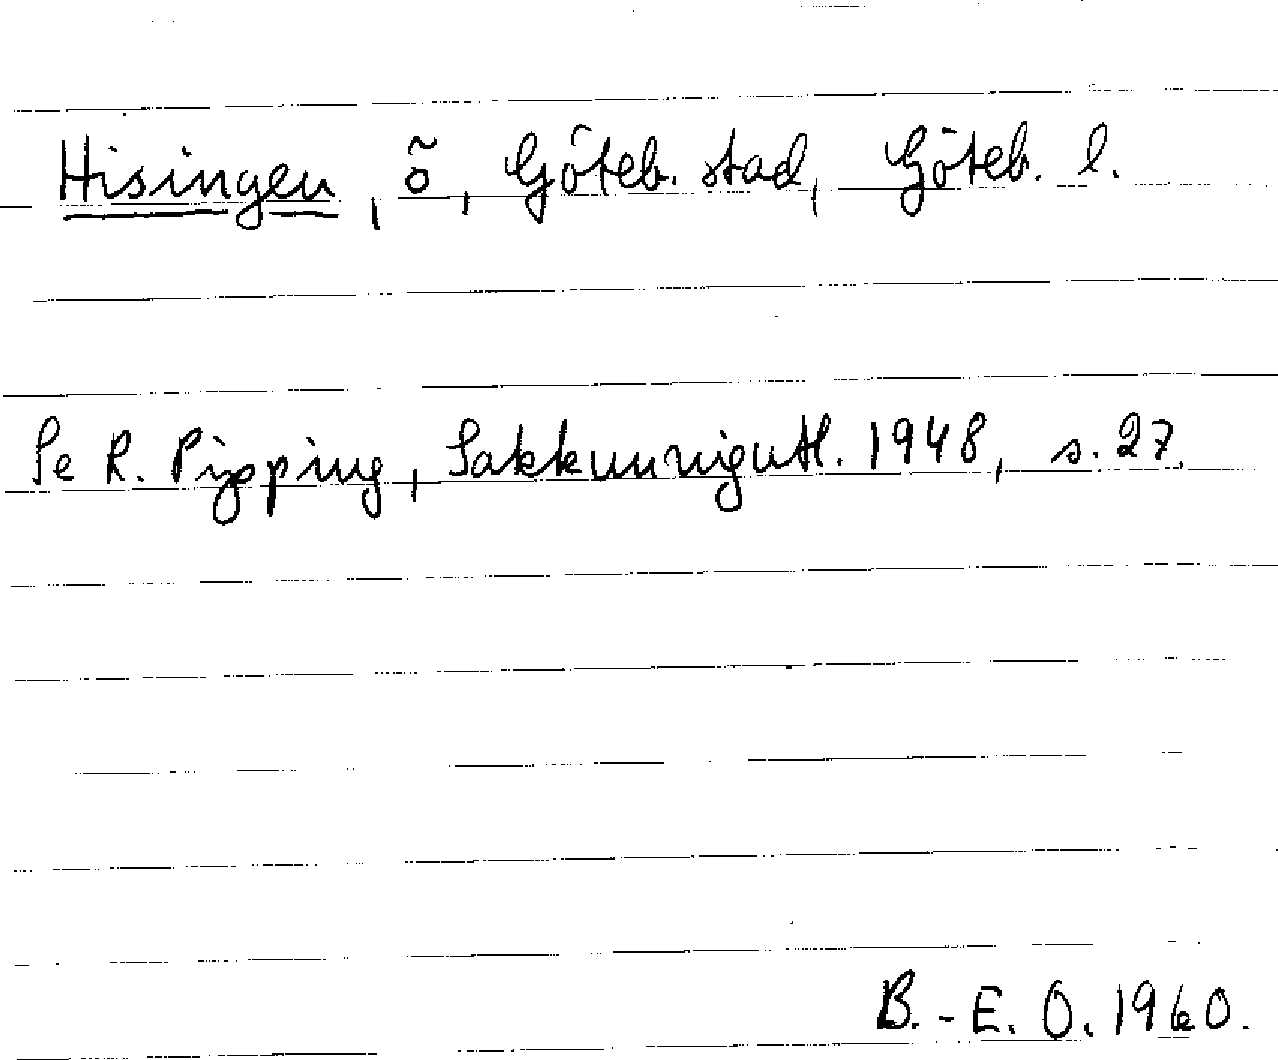 Hisingen, ö, Göteb. stad, Göteb. l.
Se R. Pipping, Sakkunnigutl. 1948, s. 27.
B.-E. O. 1960.